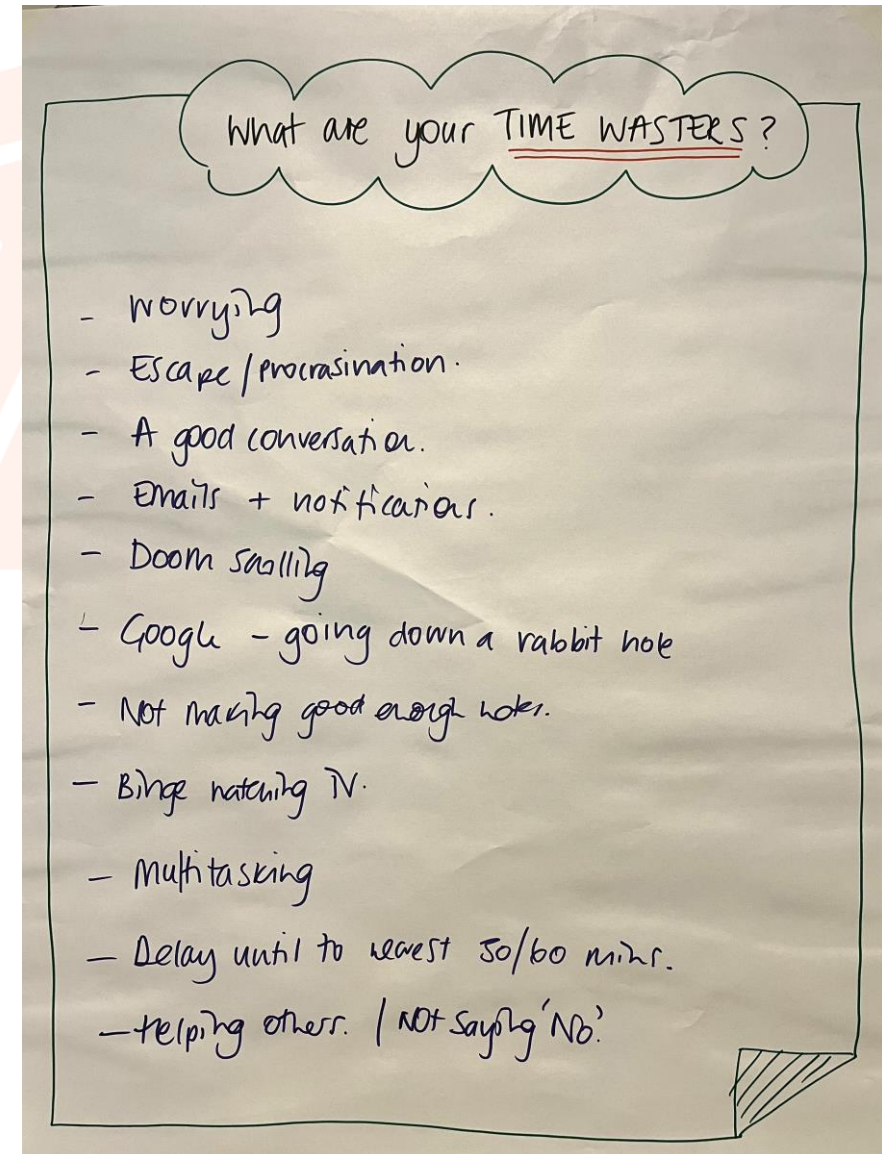 What are your TIME WASTERS?
- Worrying
- Escape/procrasination.
- A good conversation.
- Emails + notifications.
- Doom scrolling
- Google - going down a rabbit hole
- Not making good enough notes.
- Binge watching TV.
- Multitasking
- Delay until to nearest 30/60 mins.
- Helping others. / Not saying 'No'.